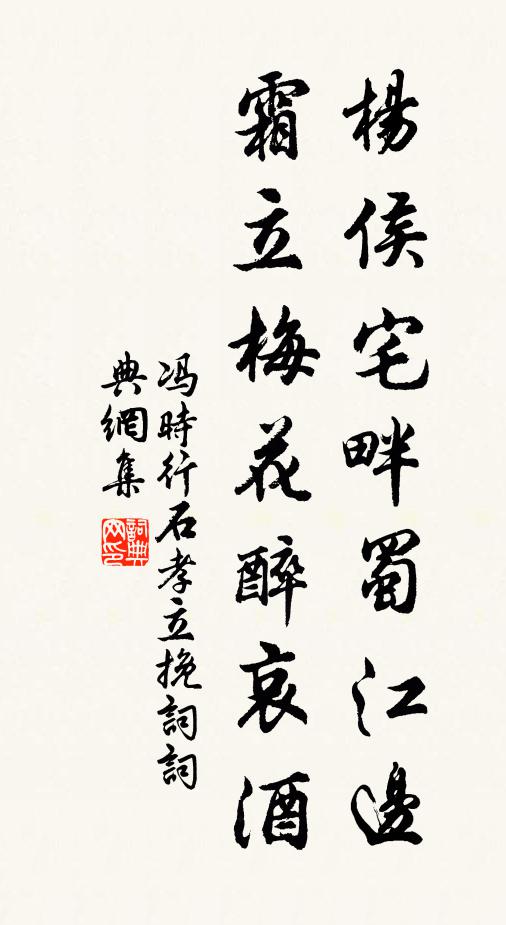 楊侯宅畔蜀江邊
霜立梅花醉哀酒
冯時行石孝立挽詞詞
典網集
詞典网印